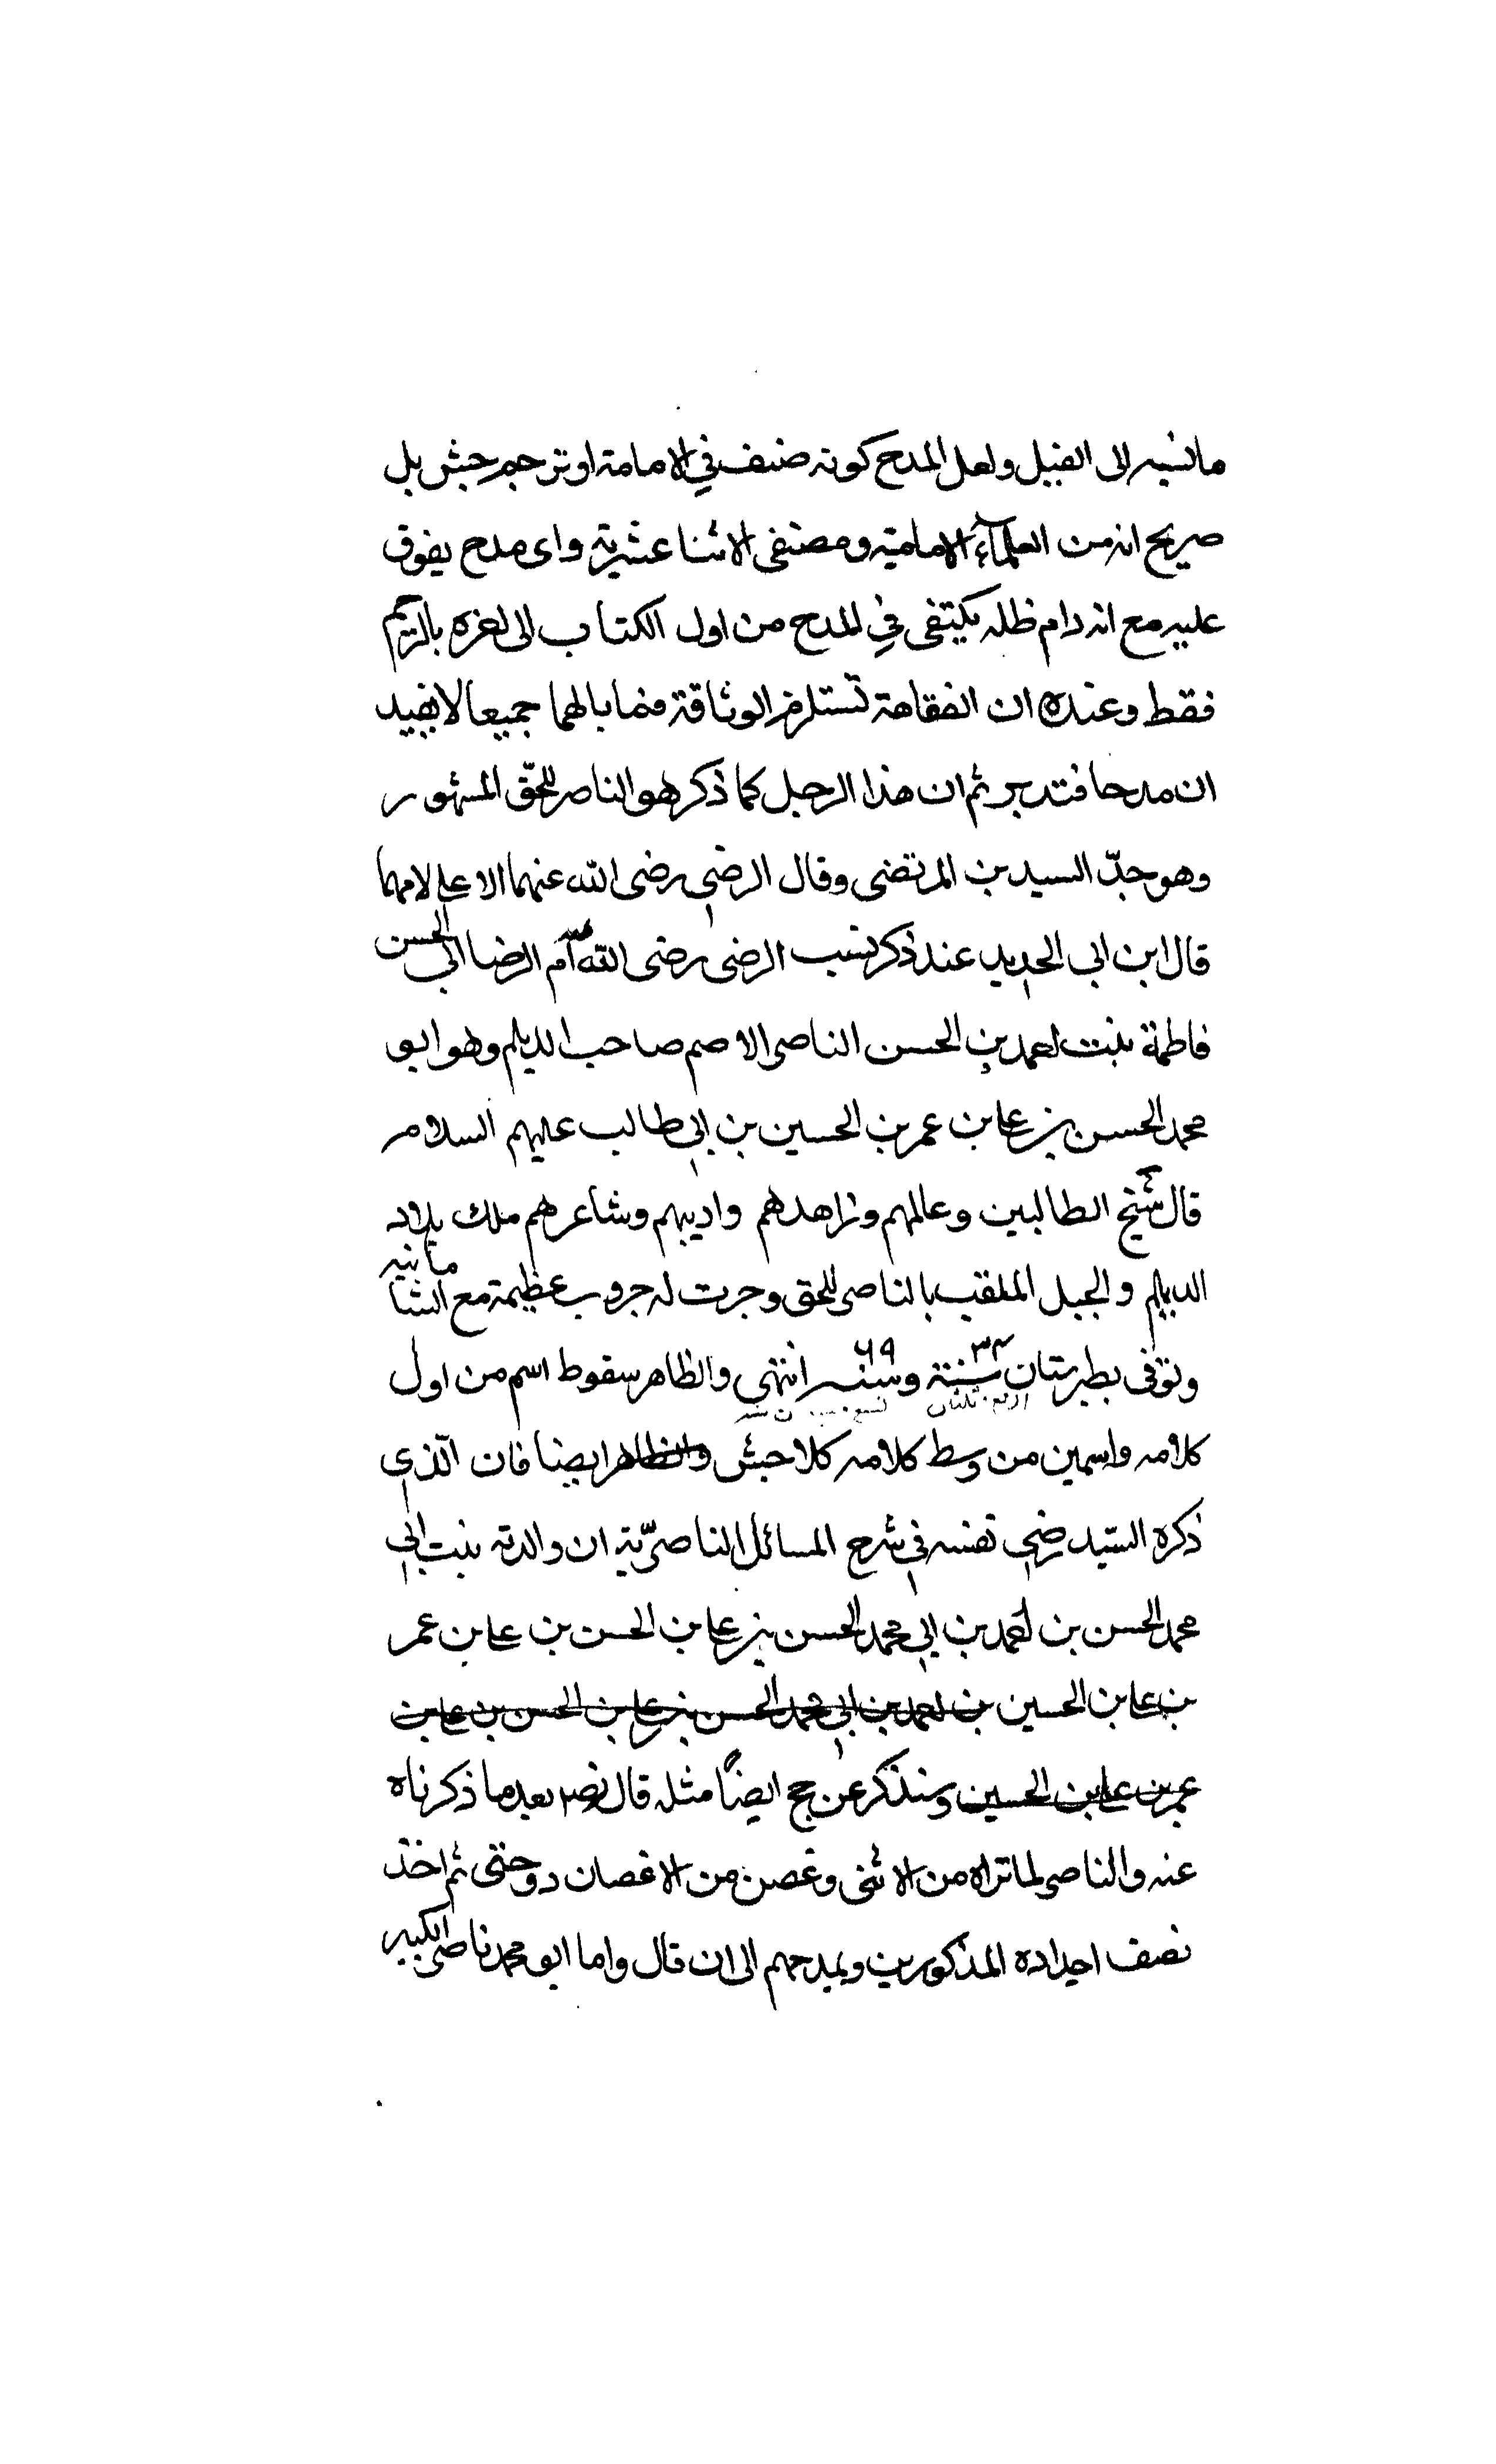 ما نسبه الى القيل ولعل المدح كونه صنف في الامامة او ترجم حبش بل
صريح انه من العلماء الامامية ومصنفى الاثنا عشرية واى مدح يفوق
عليه مع انه دام ظله يكتفى في المدح من اول الكتاب الى اخره بالترحم
فقط وعنده ان الفقاهة تستلزم الوثاقة فما بالهما جميعا لا يفيد
ان مدحا فتدبر ثم ان هذا الرجل كما ذكر هو الناصر للحقّ المشهور
وهو جدّ السيدين المرتضى وقال الرضى رضى الله عنهما الاعلى لامهما
قال ابن ابى الحديد عند ذكر نسب الرضى رضى الله ام الرضا ابى الحسن
فاطمة بنت احمد بن الحسن الناصر الاصم صاحب الديلم وهو ابو
محمد الحسن بن على بن عمر بن الحسين بن ابى طالب عليهم السلام
قال شيخ الطالبين وعالمهم وزاهدهم واديبهم وشاعرهم ملك بلاد
الديلم والجبل الملقب بالناصر للحق وجرت له حروب عظيمة مع السامانيه
وتوفى بطبرستان سنة ٣٤ وسنه ٦٩ انتهى والظاهر سقوط اسم من اول
كلامه واسمين من وسط كلامه كلا حبش والظاهر ايضا فان الّذي
ذكره السيّد رضى نفسه في شرح المسائل الناصريّة ان والدته بنت ابى
محمد الحسن بن احمد بن ابى محمد الحسن بن على بن الحسن بن على بن عمر
بن على بن الحسين بن احمد بن ابى محمد الحسن بن على بن الحسن بن على بن
عمر بن على بن الحسين وسنذكر عن جج ايضاً مثله قال رض بعد ما ذكرناه
عنه والناصر لما تراه من الاثنى وغصن من الاغصان دوحتى ثم اخذ
نصف اجداده المذكورين ويمدحهم الى ان قال واما ابو محمد ناصر الكبير